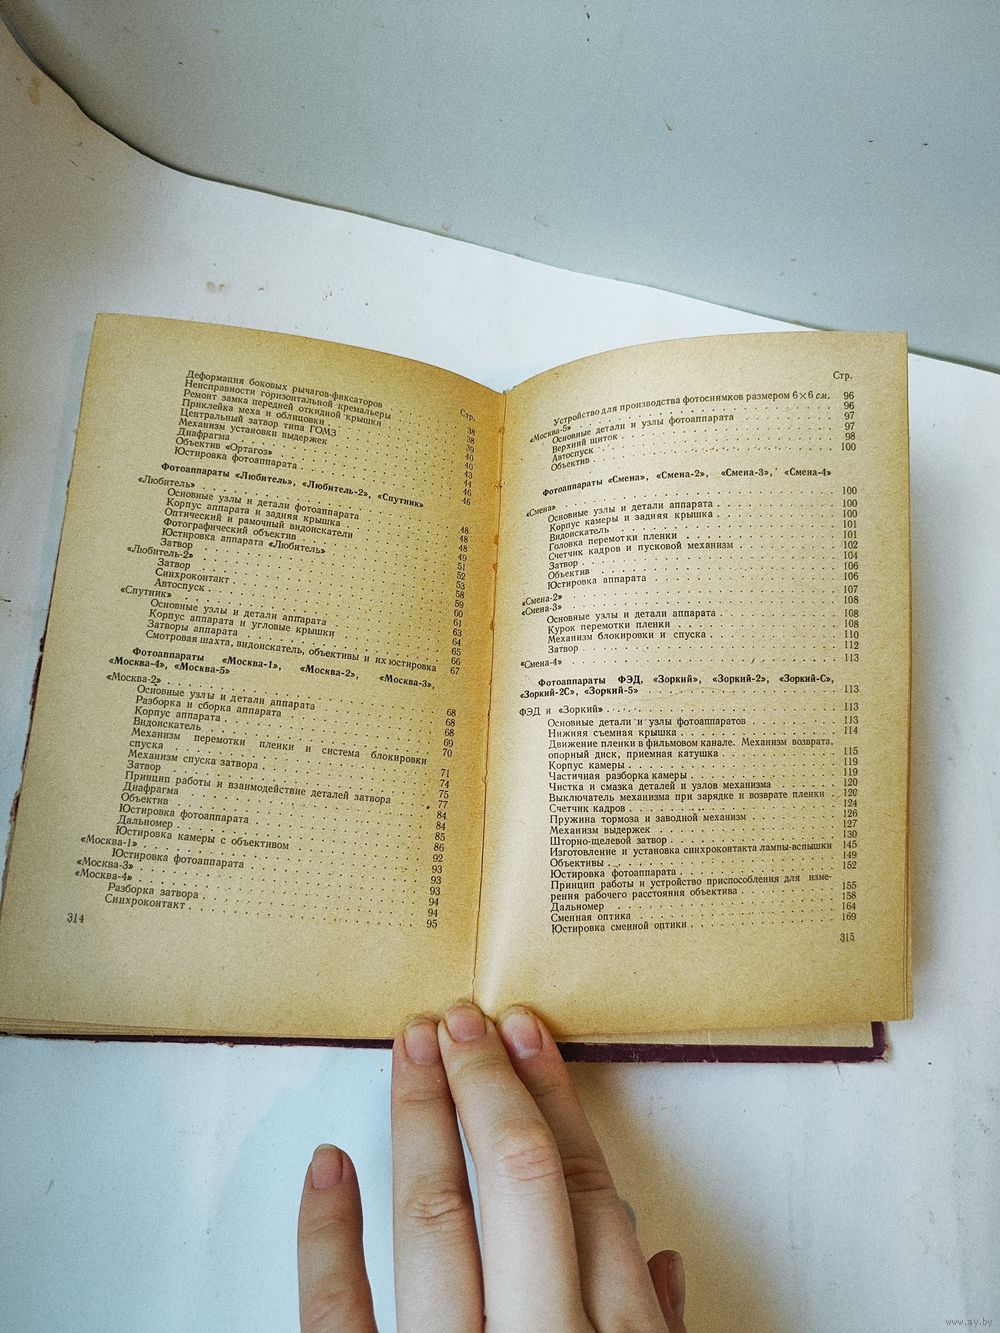 Стр.
Деформация боковых рычагов-фиксаторов . . . 38
Неисправности горизонтальной кремальеры . . . 38
Ремонт замка передней откидной крышки . . . 39
Приклейка меха и облицовки . . . 40
Центральный затвор типа ГОМЗ . . . 40
Механизм установки выдержек . . . 43
Диафрагма . . . 44
Объектив «Ортагоз» . . . 46
Юстировка фотоаппарата . . . 46
Фотоаппараты «Любитель», «Любитель-2», «Спутник»
«Любитель» . . . 48
Основные узлы и детали фотоаппарата . . . 48
Корпус аппарата и задняя крышка . . . 48
Оптический и рамочный видоискатели . . . 49
Фотографический объектив . . . 51
Юстировка аппарата «Любитель» . . . 52
Затвор . . . 53
«Любитель-2» . . . 58
Затвор . . . 59
Синхроконтакт . . . 60
Автоспуск . . . 61
«Спутник» . . . 63
Основные узлы и детали аппарата . . . 64
Корпус аппарата и угловые крышки . . . 65
Затворы аппарата . . . 66
Смотровая шахта, видоискатель, объективы и их юстировка 67
Фотоаппараты «Москва-1», «Москва-2», «Москва-3»,
«Москва-4», «Москва-5»
«Москва-2» . . . 68
Основные узлы и детали аппарата . . . 68
Разборка и сборка аппарата . . . 68
Корпус аппарата . . . 69
Видоискатель . . . 70
Механизм перемотки пленки и система блокировки
спуска . . . 71
Механизм спуска затвора . . . 74
Затвор . . . 75
Принцип работы и взаимодействие деталей затвора . . . 77
Диафрагма . . . 84
Объектив . . . 84
Юстировка фотоаппарата . . . 85
Дальномер . . . 86
Юстировка камеры с объективом . . . 92
«Москва-1» . . . 93
Юстировка фотоаппарата . . . 93
«Москва-3» . . . 93
«Москва-4» . . . 94
Разборка затвора . . . 94
Синхроконтакт . . . 95
314
Стр.
Устройство для производства фотоснимков размером 6×6 см. 96
«Москва-5» . . . 96
Основные детали и узлы фотоаппарата . . . 97
Верхний щиток . . . 97
Автоспуск . . . 98
Объектив . . . 100
Фотоаппараты «Смена», «Смена-2», «Смена-3», «Смена-4»
«Смена» . . . 100
Основные узлы и детали аппарата . . . 100
Корпус камеры и задняя крышка . . . 100
Видоискатель . . . 101
Головка перемотки пленки . . . 101
Счетчик кадров и пусковой механизм . . . 102
Затвор . . . 104
Объектив . . . 106
Юстировка аппарата . . . 106
«Смена-2» . . . 107
«Смена-3» . . . 108
Основные узлы и детали аппарата . . . 108
Курок перемотки пленки . . . 108
Механизм блокировки и спуска . . . 110
Затвор . . . 112
«Смена-4» . . . 113
Фотоаппараты ФЭД, «Зоркий», «Зоркий-2», «Зоркий-С»,
«Зоркий-2С», «Зоркий-5» . . . 113
ФЭД и «Зоркий» . . . 113
Основные детали и узлы фотоаппаратов . . . 113
Нижняя съемная крышка . . . 114
Движение пленки в фильмовом канале. Механизм возврата,
опорный диск, приемная катушка . . . 115
Корпус камеры . . . 119
Частичная разборка камеры . . . 119
Чистка и смазка деталей и узлов механизма . . . 120
Выключатель механизма при зарядке и возврате пленки . 120
Счетчик кадров . . . 124
Пружина тормоза и заводной механизм . . . 126
Механизм выдержек . . . 127
Шторно-щелевой затвор . . . 130
Изготовление и установка синхроконтакта лампы-вспышки 145
Объективы . . . 149
Юстировка фотоаппарата . . . 152
Принцип работы и устройство приспособления для изме-
рения рабочего расстояния объектива . . . 155
Дальномер . . . 158
Сменная оптика . . . 164
Юстировка сменной оптики . . . 169
315
www.ay.by